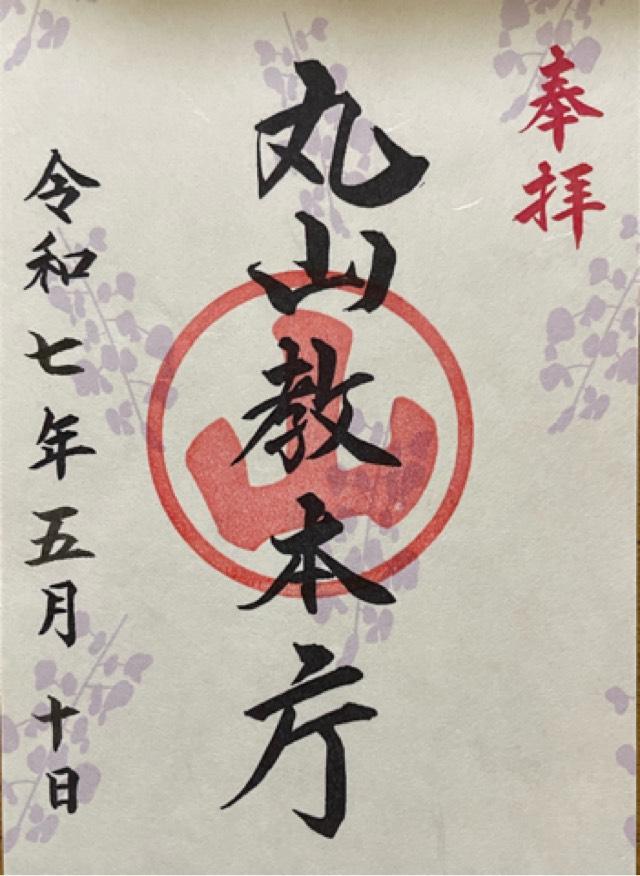 奉拝
丸山教本庁
令和七年五月十日
山